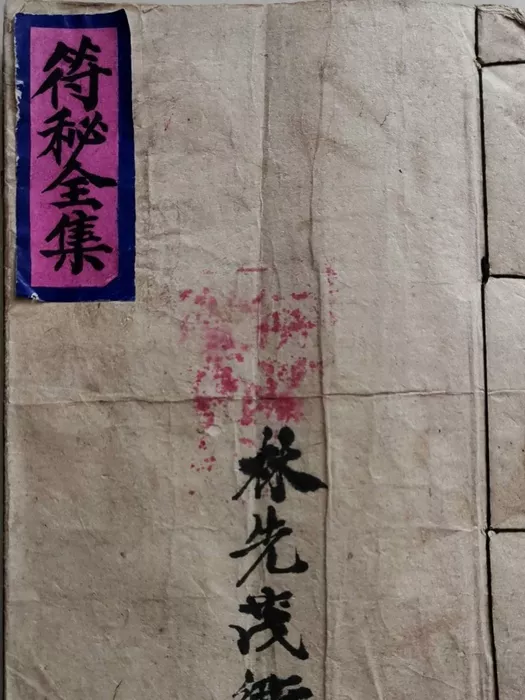 符秘全集
林先茂